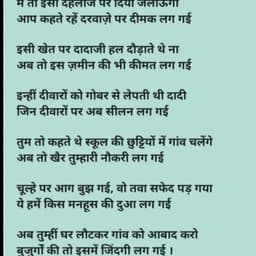 में तो इसी दहलीज पर दिया जलाऊंगा
आप कहते रहें दरवाज़े पर दीमक लग गई
इसी खेत पर दादाजी हल दौड़ाते थे ना
अब तो इस ज़मीन की भी कीमत लग गई
इन्हीं दीवारों को गोबर से लेपती थी दादी
जिन दीवारों पर अब सीलन लग गई
तुम तो कहते थे स्कूल की छुट्टियों में गांव चलेंगे
अब तो खैर तुम्हारी नौकरी लग गई
चूल्हे पर आग बुझ गई, वो तवा सफेद पड़ गया
ये हमें किस मनहूस की दुआ लग गई
अब तुम्हीं घर लौटकर गांव को आबाद करो
बुजुर्गों की तो इसमें जिंदगी लग गई ।